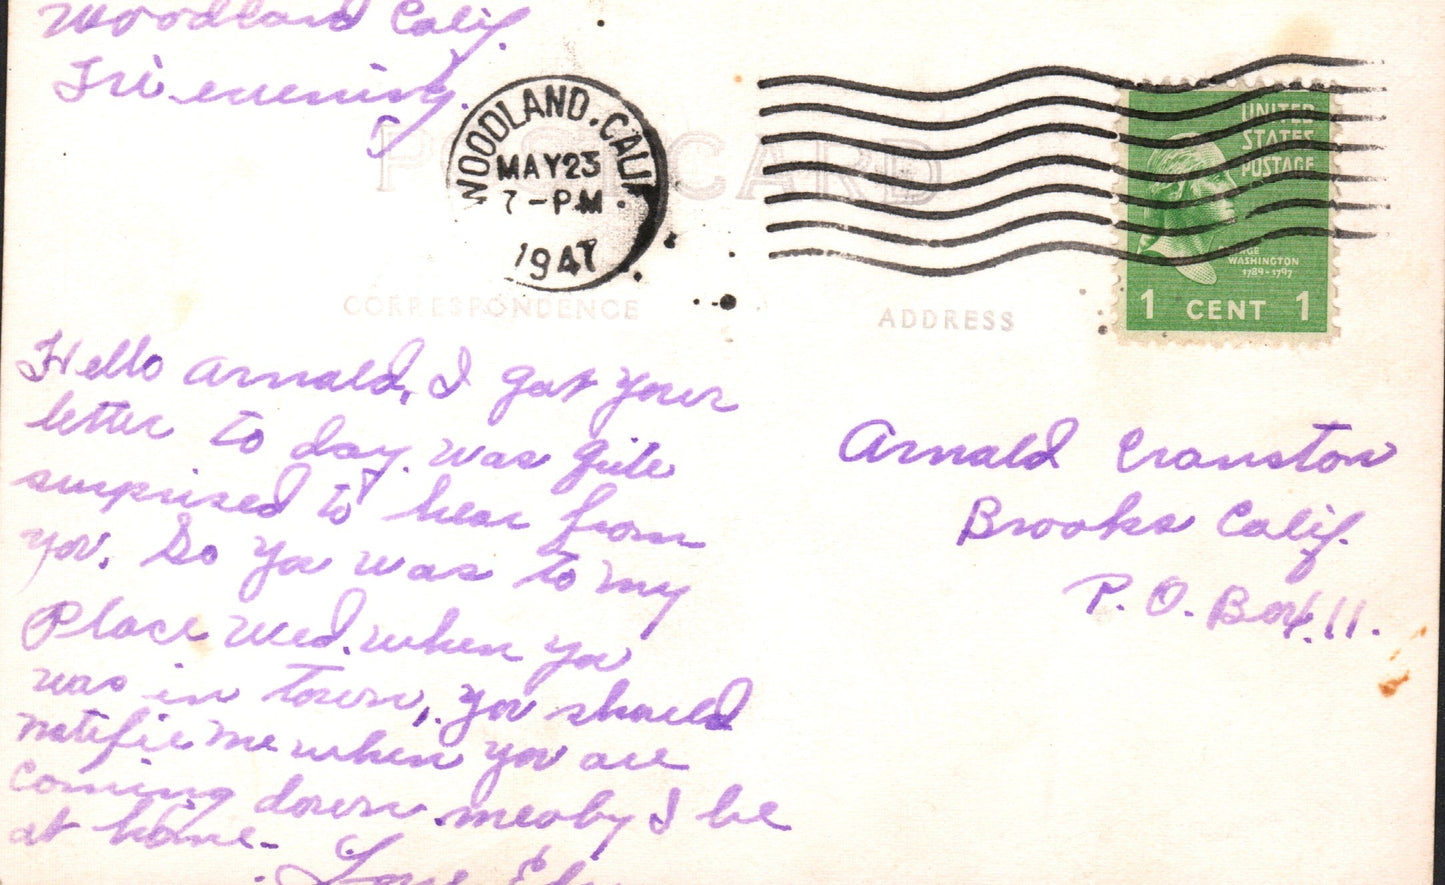 Woodland Calif.
Fri evening.
POST CARD
WOODLAND, CALIF.
MAY 23
7-PM
1947
UNITED
STATES
POSTAGE
WASHINGTON
1789-1797
1 CENT 1
CORRESPONDENCE
ADDRESS
Hello Arnald, I got your
letter to day. was quite
surprised to hear from
you. So ya was to my
Place Wed. when ya
was in town, you should
notifie me when you are
coming down. meaby I be
at home.
Arnald Cranston
Brooks Calif.
P. O. Box 11.
Love